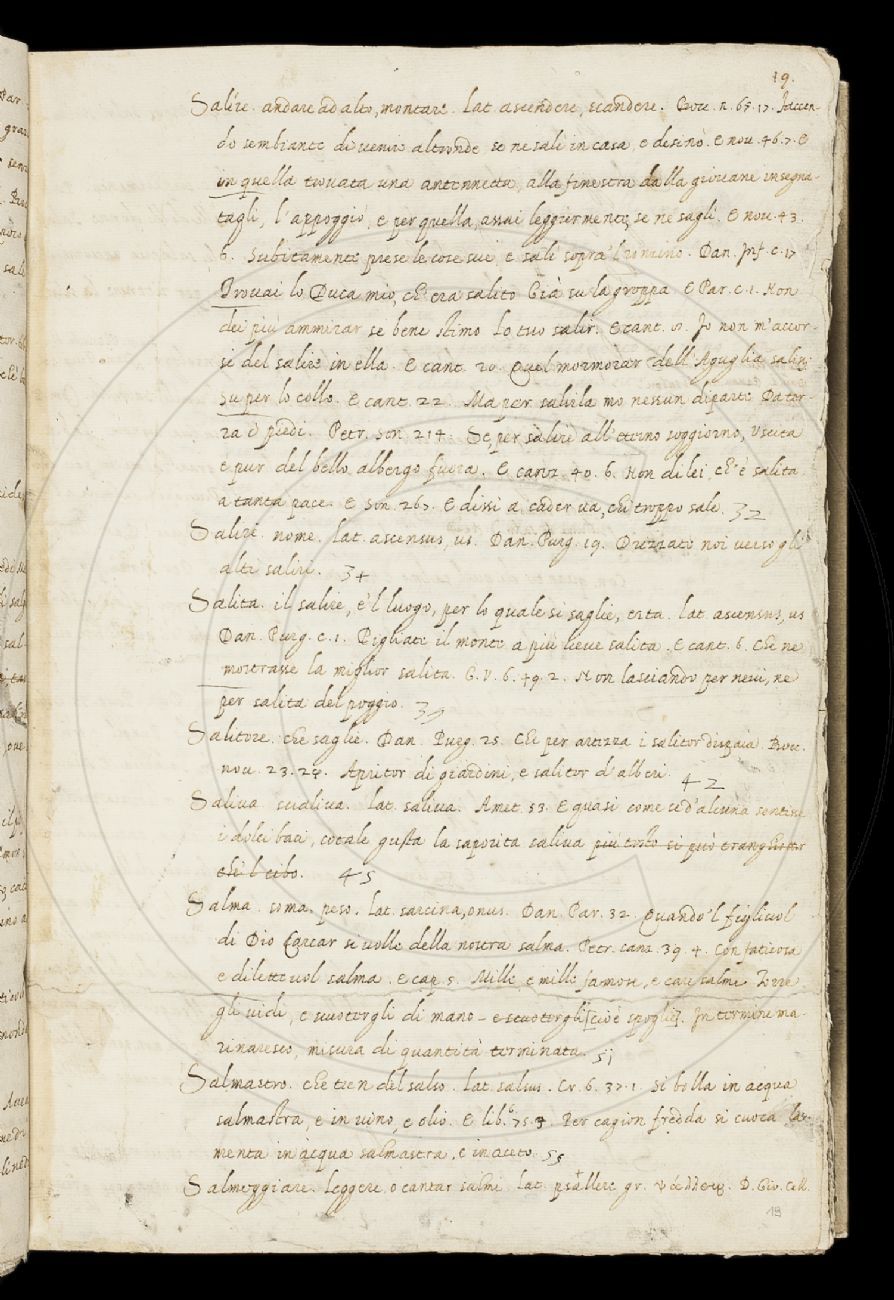 19.
Salire. andare ad alto, montare. lat. ascendere, scandere. Bocc. n. 65. 17. faccen-
do sembiante di venir altronde se ne salì in casa, e desinò. E nov. 46. 7. E
in quella trovata una antennetta, alla finestra dalla giovane insegna-
tagli, l'appoggiò, e per quella, assai leggiermente, se ne saglì. E nov. 43.
6. Subitamente prese le cose sue, e salì sopra 'l ronzino. Dan. Inf. c. 17
Trovai lo Duca mio, ch'era salito Già su la groppa E Par. c. 1. Non
dei più ammirar se bene stimo Lo tuo salir. E cant. Io non m'accor-
si del salire in ella. E cant. 20. Quel mormorar dell'Aguglia salissi
su per lo collo. E cant. 22. Ma per salirla mo nessun diparte Da ter-
ra i piedi. Petr. son. 214. Se, per salire all'eterno soggiorno, Uscita
è pur del bello albergo fuora. E canz. 40. 6. Non di lei, ch'è salita
a tanta pace. E son. 267. E dissi a cader va, chi troppo sale. 32
Salire. nome. lat. ascensus, us. Dan. Purg. 19. Drizzate noi verso gli
alti saliri. 34
Salita. il salire, e 'l luogo, per lo quale si saglie, erta. lat. ascensus, us
Dan. Purg. c. 1. Pigliate il monte a più lieve salita. E cant. 6. Che ne
mostrasse la miglior salita. G. V. 6. 49. 2. Non lasciando per nevi, ne
per salita del poggio. 35
Salitore. che saglie. Dan. Purg. 25. Che per artezza i salitor dispaia. Bocc.
nov. 23. 29. Apritor di giardini, e salitor d'alberi. 42
Saliva scialiva. lat. saliva. Amet. 53. E quasi come se d'alcuna sentisse
i dolci baci, cotale gusta la saporita saliva più tosto si può tranghiottir
che 'l cibo. 45
Salma. soma, peso. lat. sarcina, onus. Dan. Par. 32. Quando 'l figliuol
di Dio Carcar si volle della nostra salma. Petr. canz. 39. 4. Con faticosa
e dilettevol salma. E cap. 5. Mille, e mille famose, e care salme Torre
gli vidi, e scuotergli di mano - e scuotergli [cioè spoglie]. In termine ma-
rinaresco, misura di quantità terminata. 51
Salmastro. che tien del salso. lat. salsus. Cr. 6. 37. 1. Si bolla in acqua
salmastra, e in vino, e olio. E lib. 75. 3. Per cagion fredda si cuoca la
menta in acqua salmastra, e in aceto. 55
Salmeggiare. leggere, o cantar salmi. lat. psallere gr. D. Gio. Cell.
19